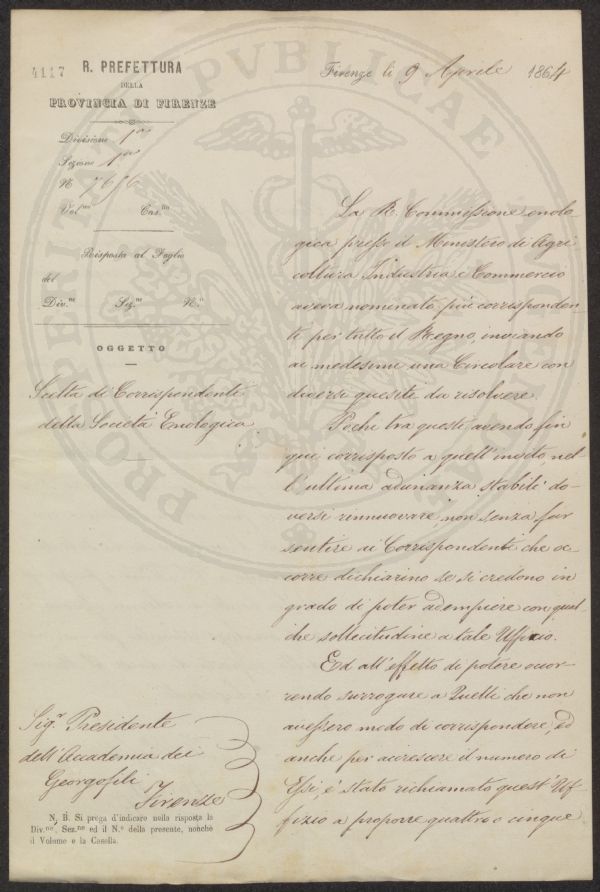 4117
R. PREFETTURA
DELLA
PROVINCIA DI FIRENZE
Divisione 1ma
Sezione 1ma
N. 7656
Vol.me Cas.lla
Risposta al Foglio
del
Div.ne Sez.ne N.o
OGGETTO
Scelta di Corrispondenti
della Società Enologica
Firenze li 9 Aprile 1864
La R. Commissione enolo-
gica presso il Ministero di Agri
coltura Industria e Commercio
aveva nominato più corrisponden
ti per tutto il Regno, inviando
ai medesimi una Circolare con
diversi quesiti da risolvere.
Pochi tra questi avendo fin
qui corrisposto a quell'invito, nel
l'ultima adunanza stabilì do-
versi rinnuovare, non senza far
sentire ai Corrispondenti che oc
corre dichiarino se si credono in
grado di poter adempiere con qual
che sollecitudine a tale Uffizio.
Ed all'effetto di potere occor-
rendo surrogare a Quelli che non
avessero modo di corrispondere, ed
anche per accrescere il numero di
Essi, è stato richiamato quest'Uf
fizio a proporre quattro o cinque
Sig.r Presidente
dell'Accademia dei
Georgofili
Firenze
N. B. Si prega d'indicare nella risposta la
Div.ne, Sez.ne ed il N.o della presente, nonchè
il Volume e la Casella.
PROSPERITATI PVBLICAE AVGENDAE